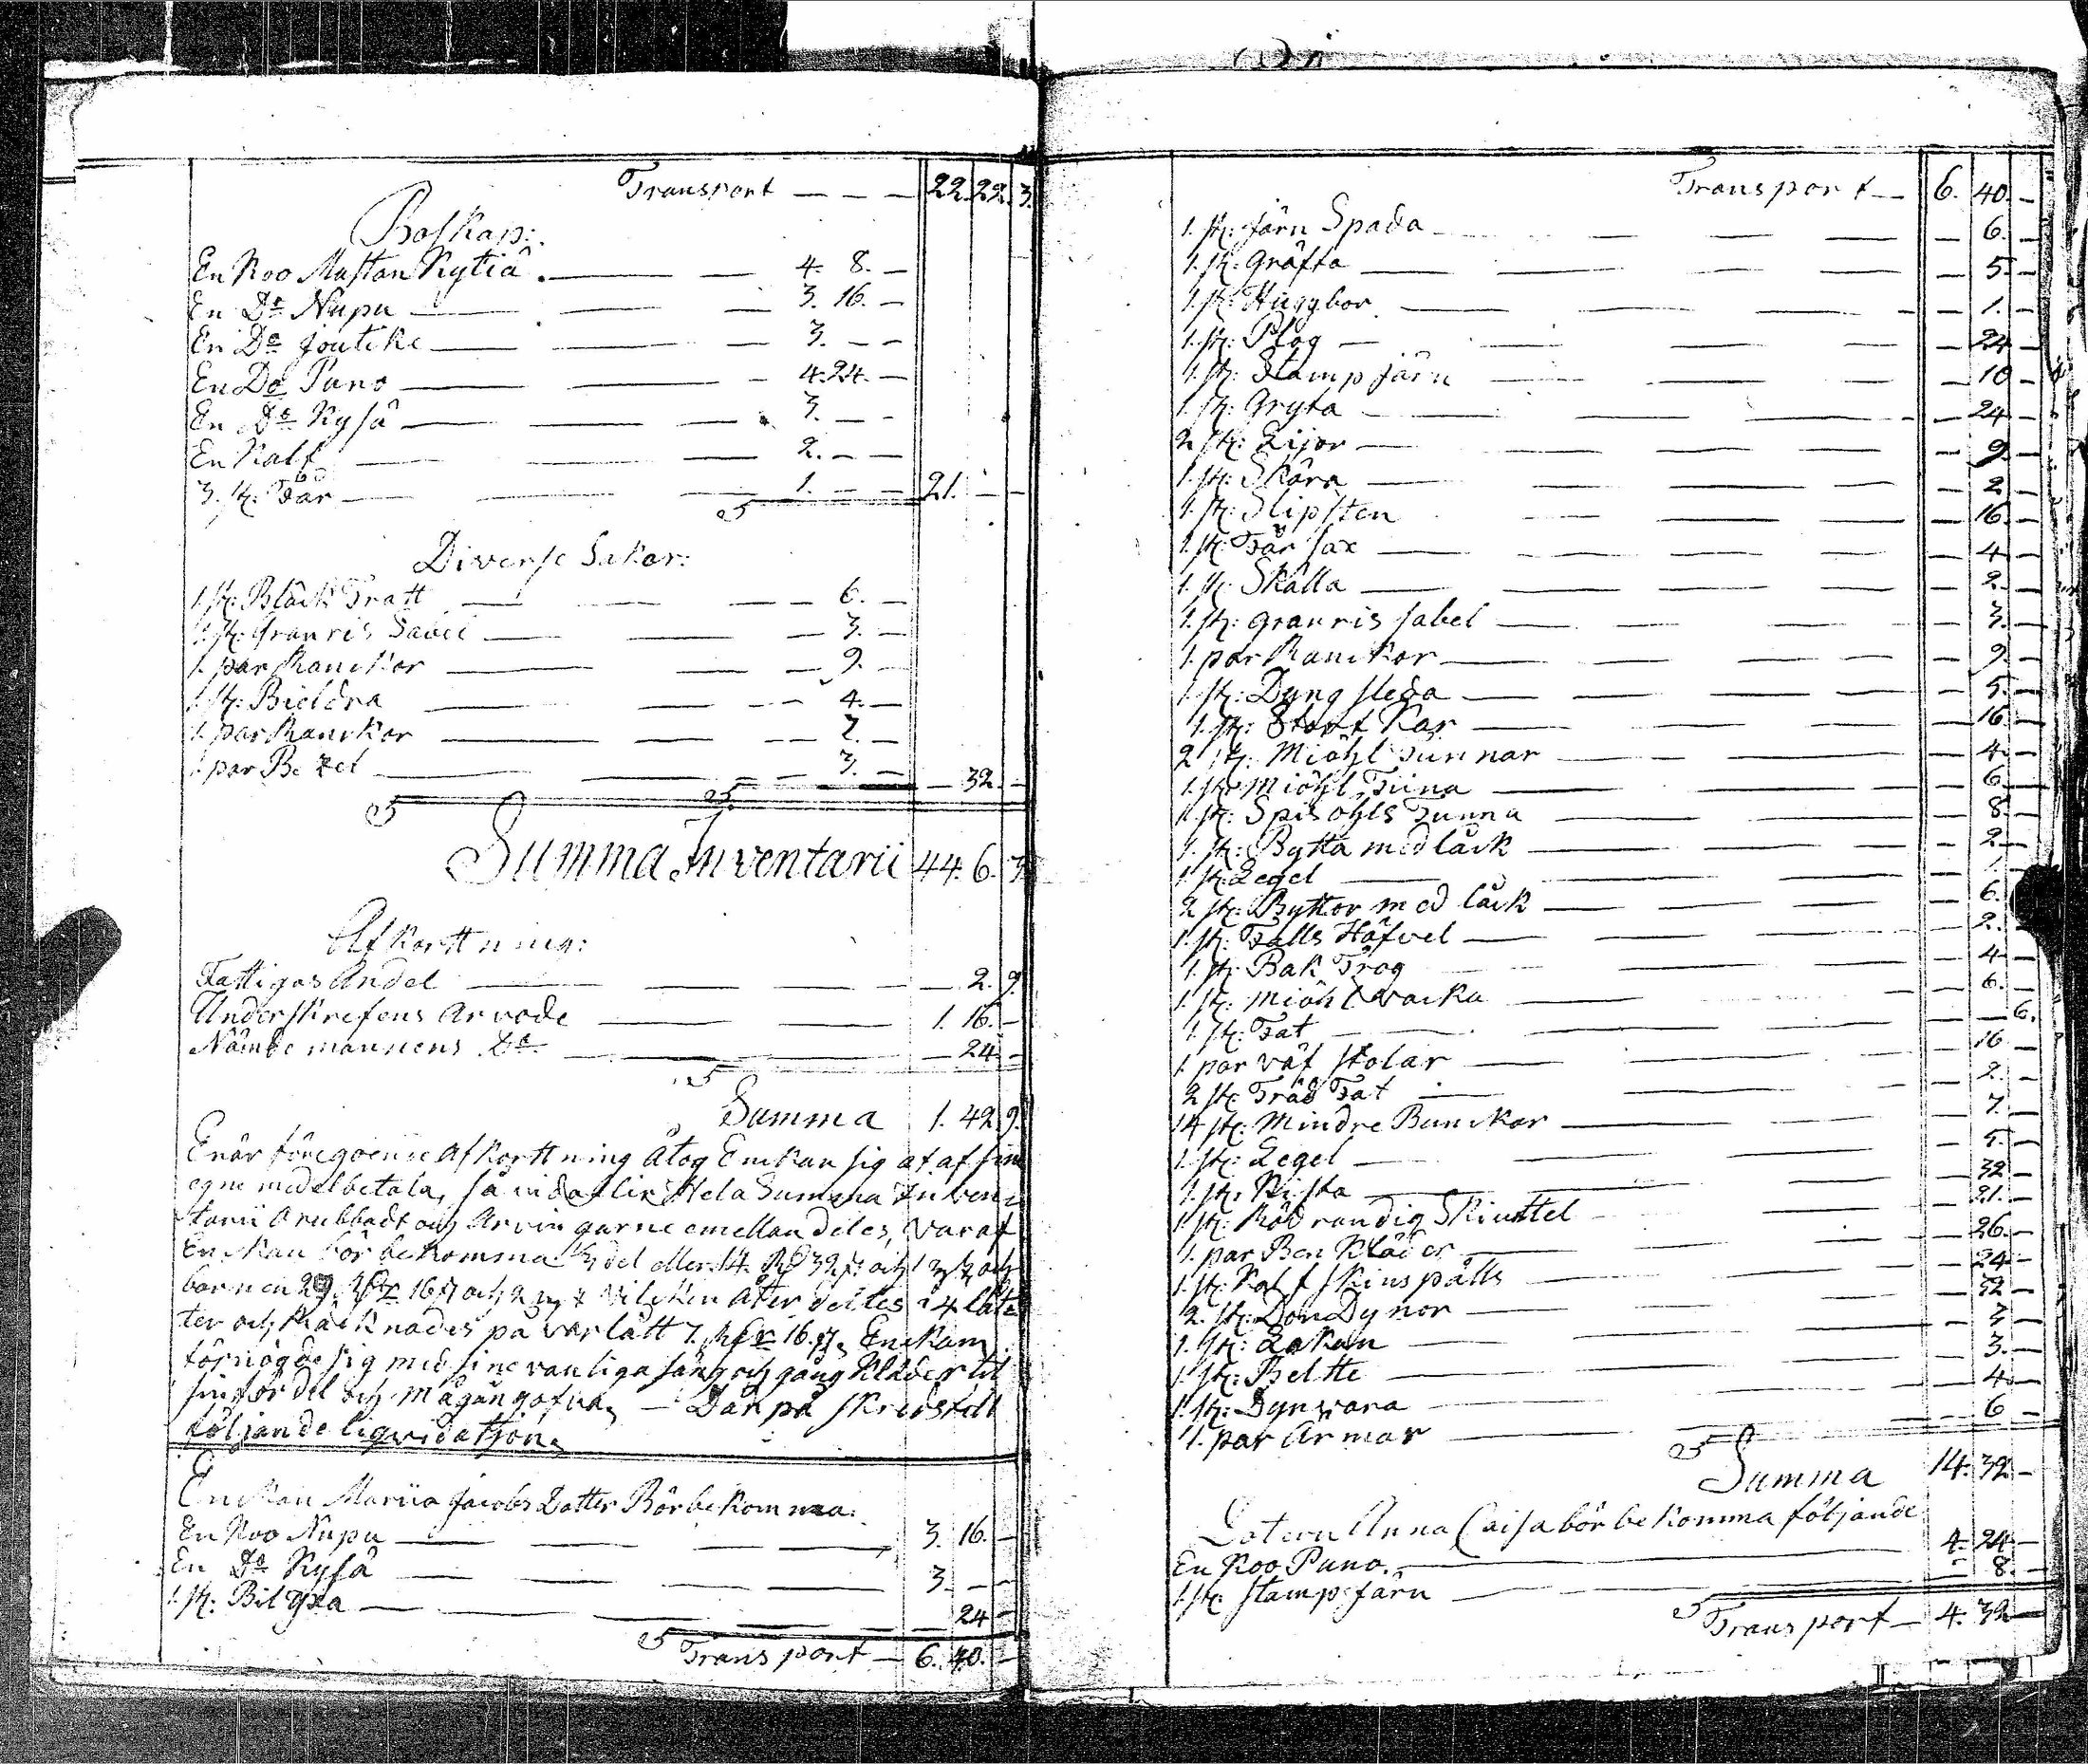 Transport — — — 22. 22. 3.
Boskap:
En Koo Mustan Kytiä. — — 4. 8. —
En Do Nupu — — — 3. 16. —
En Do Joutike — — — 3. — —
En Do Puno — — — 4. 24. —
En Do Kyså — — — 3. — —
En Kalf — — — 2. — —
3. st: Får — — — 1. — — 21. — —
Diverse Saker:
1. st: Bläck Tratt — — — 6. —
1. st: Granris Sabel — — — 3. —
1. par Ranckor — — — 9. —
1. st: Bieldra — — — 4. —
1. par Ranckor — — — 7. —
1. par Betzel — — — 3. — — 32. —
Summa Inventarii 44. 6. 3
Afkorttning:
Fattigas Andel — — — — 2. 9.
Underskrefvens Arvode — — — 1. 16. —
Nämbdemannens Do — — — — 24. —
Summa 1. 42. 9.
Enär föregoende Afkorttning åtog Enckan sig at af sine
egne medel betala, så
tarii Orubbadt och Arfvingarne emellan deles, varaf
Enckan bör bekomma 1/3 del eller 14. Rd 32 s: och 1 och
barnen 29. Rdr 16 s och 2 vilcken åter deltes i 4 låt
ter och Räcknades på var lått 7. Rdr 16. s, Enckan
förnögde sig med sine vanliga säng och gång kläder til
sin fördel och Mågångåfva, — Där på skreds till
följande liqvidation,
Enckan Mariia Jacobs Dotter Bör bekomma:
En Koo Nupu — — — 3. 16. —
En Do Kyså — — — 3. — —
1. st: Bil yxa — — — 24 —
Transport — 6. 40. —
Transport — 6. 40. —
1. st: järn Spada — — — — 6. —
1. st: Gräfta — — — — 5. —
1. st: Huggbor — — — — 1. —
1. st: Plog — — — — 24 —
1. st: Stamp järn — — — — 10 —
1. st: Gryta — — — — 24 —
2 st: Lijor — — — — 9. —
1. st: Skära — — — — 2 —
1. st: Slipsten — — — — 16. —
1. st: Får sax — — — — 4 —
1. st: Skålla — — — — 2. —
1. st: granris sabel — — — — 3. —
1. par Ranckor — — — — 9. —
1. st: Dyng sleda — — — — 5. —
1. st: Stort Kar — — — — 16. —
2 st: Miöhl Tunnar — — — — 4. —
1. st: Miöhl Tiina — — — — 6. —
1. st: Spisöhls Tunna — — — — 8. —
1. st: Bytta med låck — — — — 2. —
1. st: Legel — — — — 1. —
2 st: Byttor med låck — — — — 6. —
1. st: Falls Höfvel — — — — 2. —
1. st: Bak Trog — — — — 4 —
1. st: Miöhl Wacka — — — — 6. —
1. st: Fat — — — — — 6.
1. par väf stolar — — — — 16 —
2 st: Träd Fat — — — — 2. —
14 st: Mindre Bunckar — — — — 7. —
1. st: Legel — — — — 5. —
1. st: Kista — — — — 32 —
1. st: Rödrandig Skiurttel — — 21. —
1. par Ben Kläder — — — — 26. —
1. st: Kalfskins pälls — — — — 24 —
2. st: Don Dynor — — — — 32 —
1. st: Lakan — — — — 3 —
1. st: Beltte — — — — 3. —
1. st: Dynvara — — — — 4. —
1. par Armar — — — — 6 —
Summa 14. 32 —
Dotern Anna Caisa bör bekomma följande
En Koo Puno. — — 4. 24 —
1. st: stamp järn — — — 8. —
Transport — 4. 32 —